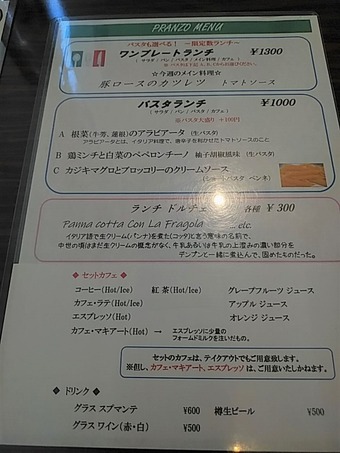 PRANZO MENU
パスタも選べる！ ～限定数ランチ～
ワンプレートランチ ¥1300
( サラダ / パン / パスタ / メイン料理 / カフェ )
☆今週のメイン料理☆
豚ロースのカツレツ トマトソース
パスタランチ ¥1000
( サラダ / パン / パスタ / カフェ )
※パスタ大盛り +100円
A 根菜(牛蒡、蓮根)のアラビアータ (生パスタ)
アラビアータとは、イタリア料理で、唐辛子を利かせたトマトソースのこと
B 鶏ミンチと白菜のペペロンチーノ 柚子胡椒風味 (生パスタ)
C カジキマグロとブロッコリーのクリームソース
(ショートパスタ ペンネ)
ランチ ドルチェ 各種 ¥ 300
Panna cotta Con La Fragola etc.
イタリア語で生クリーム(パンナ)を煮た(コッタ)と言う意味の名前で、
中世の頃はまだ生クリームの概念がなく、牛乳あるいは牛乳の上澄みの濃い部分を
デンプンと一緒に煮込んで、固めたものだった。
❖ セットカフェ ❖
コーヒー(Hot/Ice) 紅茶(Hot/Ice) グレープフルーツ ジュース
カフェ・ラテ(Hot/Ice) アップル ジュース
エスプレッソ(Hot) オレンジ ジュース
カフェ・マキアート(Hot) → エスプレッソに少量の
フォームドミルクを注いだもの。
セットのカフェは、テイクアウトでもご用意致します。
※但し、カフェ・マキアート、エスプレッソ は、ご用意いたしかねます。
❖ ドリンク ❖
グラス スプマンテ ¥600 樽生ビール ¥500
グラス ワイン(赤・白) ¥500